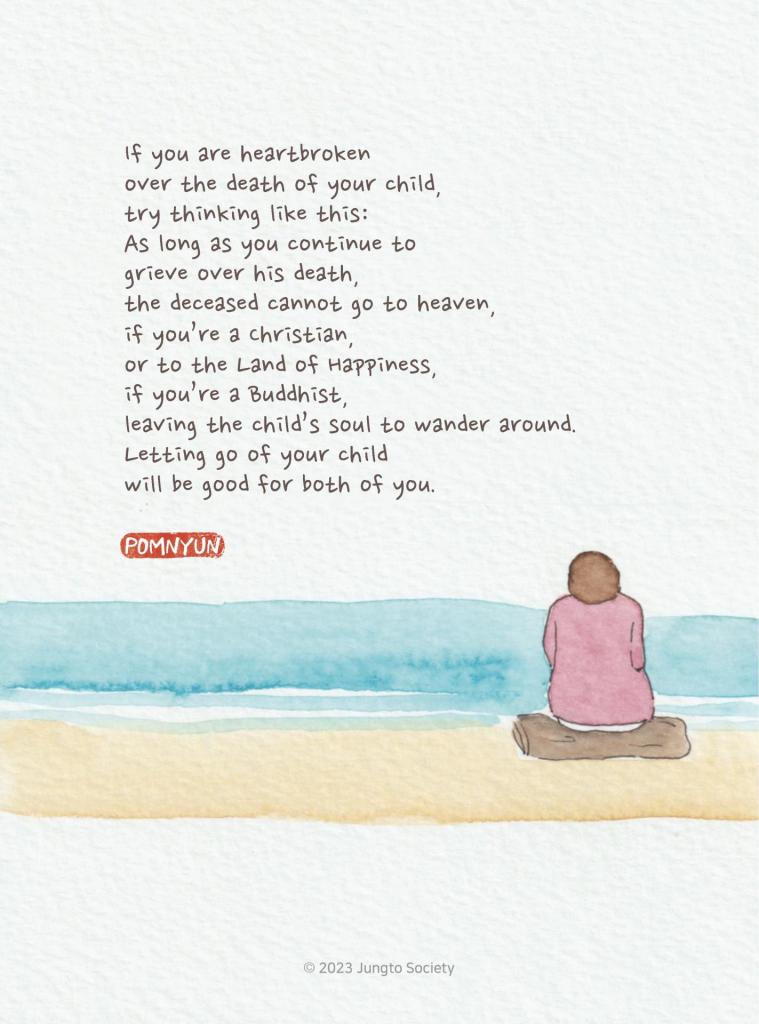 If you are heartbroken
over the death of your child,
try thinking like this:
As long as you continue to
grieve over his death,
the deceased cannot go to heaven,
if you're a Christian,
or to the Land of Happiness,
if you're a Buddhist,
leaving the child's soul to wander around.
Letting go of your child
will be good for both of you.
POMNYUN
© 2023 Jungto Society